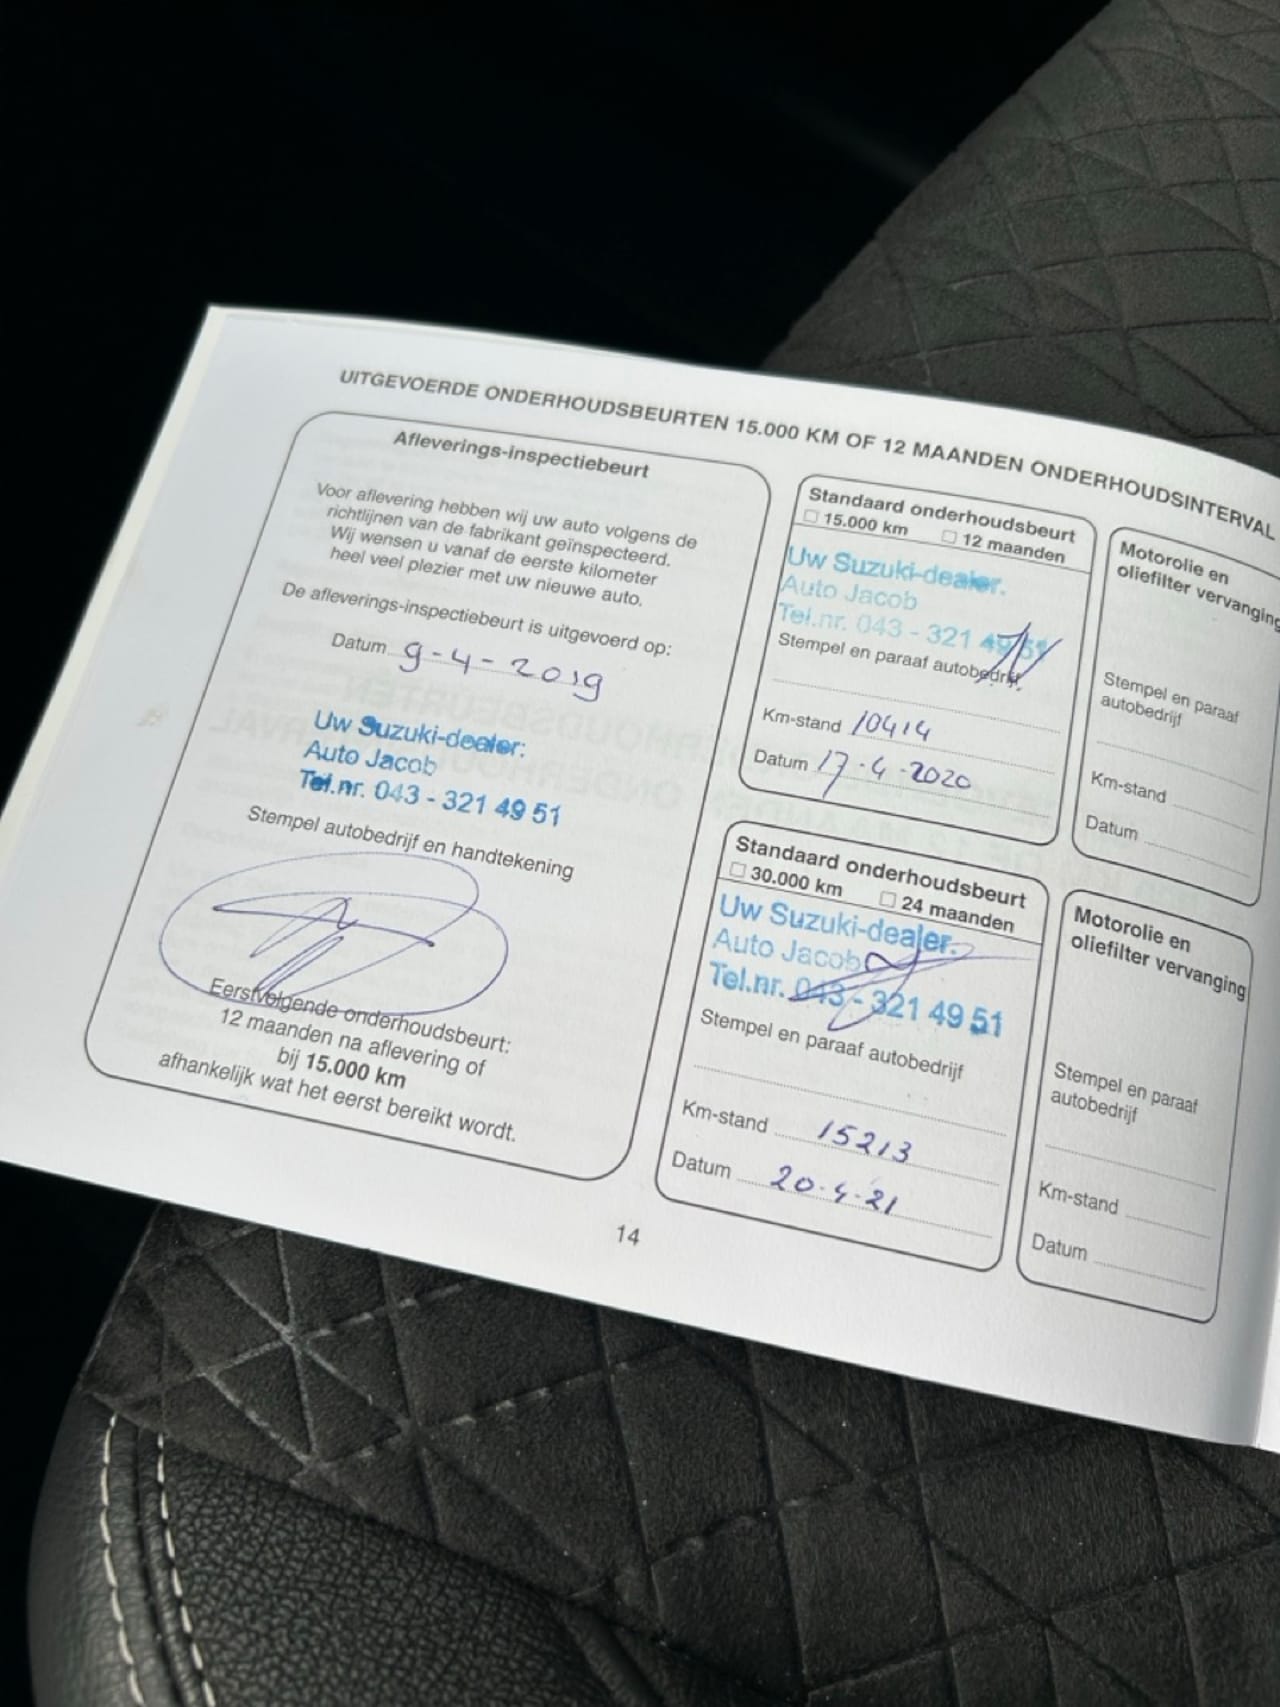 UITGEVOERDE ONDERHOUDSBEURTEN 15.000 KM OF 12 MAANDEN ONDERHOUDSINTERVAL
Afleverings-inspectiebeurt
Voor aflevering hebben wij uw auto volgens de
richtlijnen van de fabrikant geïnspecteerd.
Wij wensen u vanaf de eerste kilometer
heel veel plezier met uw nieuwe auto.
De afleverings-inspectiebeurt is uitgevoerd op:
Datum 9-4-2019
Uw Suzuki-dealer:
Auto Jacob
Tel.nr. 043 - 321 49 51
Stempel autobedrijf en handtekening
Eerstvolgende onderhoudsbeurt:
12 maanden na aflevering of
bij 15.000 km
afhankelijk wat het eerst bereikt wordt.
Standaard onderhoudsbeurt
15.000 km 12 maanden
Uw Suzuki-dealer.
Auto Jacob
Tel.nr. 043 - 321 49 51
Stempel en paraaf autobedrijf
Km-stand 10414
Datum 17-4-2020
Motorolie en
oliefilter vervanging
Stempel en paraaf
autobedrijf
Km-stand
Datum
Standaard onderhoudsbeurt
30.000 km 24 maanden
Uw Suzuki-dealer.
Auto Jacob
Tel.nr. 043 - 321 49 51
Stempel en paraaf autobedrijf
Km-stand 15213
Datum 20-4-21
Motorolie en
oliefilter vervanging
Stempel en paraaf
autobedrijf
Km-stand
Datum
14